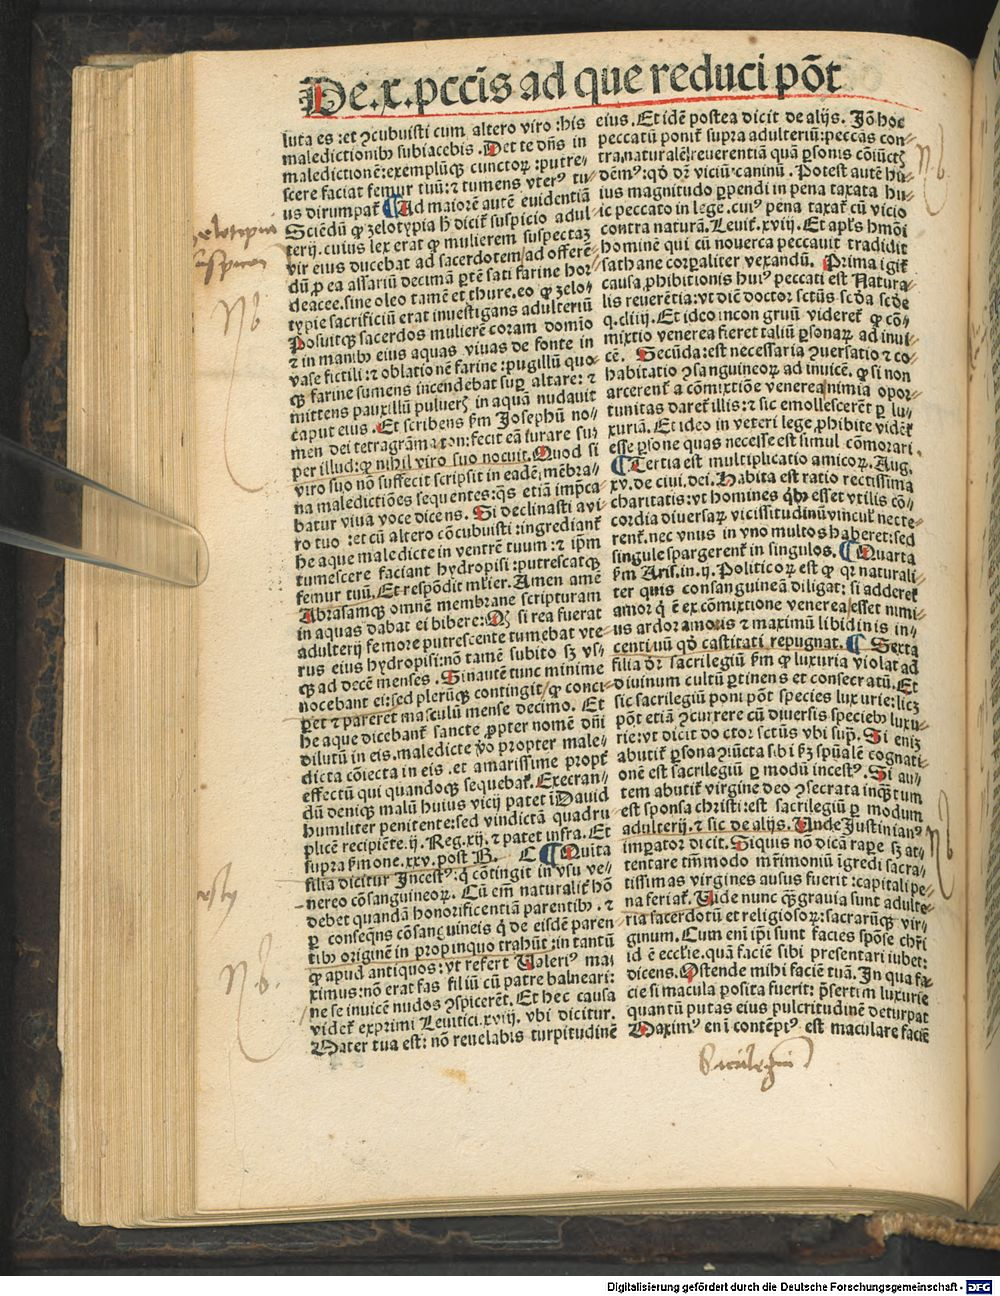 De.x.pccīs ad que reduci pōt
luta es:et ꝯcubuisti cum altero viro:his
maledictionibꝰ subiacebis.Det te dn̄s in
maledictionē:exemplūqꝫ cunctoꝝ:putre-
scere faciat femur tuū:⁊ tumens vterꝰ tu-
us dirumpat̄ ¶Ad maiorē autē euidentiā
Sciēdū ꝙ zelotypia h̄ dicit̄ suspicio adul-
terij.cuius lex erat ꝙ mulierem suspectaꝫ
vir eius ducebat ad sacerdotem/ad offerē-
dū ꝓ ea assariū decimā ꝑtē sati farine hor-
deacee.sine oleo tamē et thure.eo ꝙ zelo-
typie sacrificiū erat inuestigans adulteriū
Posuitqꝫ sacerdos mulierē coram domīo
⁊ in manibꝰ eius aquas viuas de fonte in
vase fictili:⁊ oblationē farine:pugillū quo-
qꝫ farine sumens incendebat suꝑ altare:⁊
mittens pauxillū pulueꝝ in aquā nudauit
caput eius.Et scribens ẜm Josephū no-
men dei tetragrāmaton:fecit eā iurare suꝑ
per illud:ꝙ nihil viro suo nocuit.Quod si
viro suo nō suffecit scripsit in eadē mēbra-
na maledictiōes sequentes:q̄s etiā imp̄ca-
batur viua voce dicens.Si declinasti a vi-
ro tuo:et cū altero cōcubuisti:ingrediant̄
he aque maledicte in ventrē tuum:⁊ ip̄m
tumescere faciant hydropisi:putrescatqꝫ
femur tuū.Et respōdit ml̄ier.Amen amē
Abrasamqꝫ omnē membrane scripturam
in aquas dabat ei bibere:Qꝫ si rea fuerat
adulterij femore putrescente tumebat vte-
rus eius hydropisi:nō tamē subito sꝫ vs-
qꝫ ad decē menses.Sin autē tunc minime
nocebant ei:sed plerūqꝫ contingit/ꝙ conci-
ꝑet ⁊ pareret masculū mense decimo. Et
he aque dicebant̄ sancte ꝓpter nomē dn̄i
dilutū in eis.maledicte v̄o propter male-
dicta cōiecta in eis.et amarissime propt̄
effectū qui quandoqꝫ sequebat̄.Execran-
dū deniqꝫ malū huius vicij patet ī Dauid
humiliter penitente:sed vindictā quadru
plicē recipiēte.ij.Reg.xij.⁊ patet infra.Et
supra ẜmone.xxv.post B. C ¶Quīta
filia dicitur Incestꝰ:q̄ cōtingit in vsu ve-
nereo cōsanguineoꝝ. Cū em̄ naturalit̄ hō
debet quandā honorificentiā parentibꝰ.⁊
ꝑ conseqn̄s cōsanguineis q̄ de eisdē paren
tibꝰ originē in propinquo trahūt:in tantū
ꝙ apud antiquos:vt refert Ualeriꝰ mai
ximus:nō erat fas filiū cū patre balneari:
ne se inuicē nudos ꝯspicerēt.Et hec causa
videt̄ exprimi Leuitici.xviij.vbi dicitur.
Mater tua est:nō reuelabis turpitudinē
eius.Et idē postea dicit de alijs. Jō hoc
peccatū ponit̄ supra adulteriū:peccās con-
tra naturalē reuerentiā quā ꝑsonis cōiūctꝫ
dēmꝰ:qd̄ dr̄ viciū caninū.Potest autē hu-
ius magnitudo ꝑpendi in pena taxata hu-
ic peccato in lege.cuiꝰ pena taxat̄ cū vicio
contra naturā.Leuit̄.xviij.Et apl̄s hmōi
hominē qui cū nouerca peccauit tradidit
sathane corꝑaliter vexandū. Prima igit̄
causa ꝓhibitionis huiꝰ peccati est Natura-
lis reuerētia:vt diē doctor sctūs scd̄a scd̄e
q.cliiij.Et ideo incongruū videret̄ ꝙ cō-
mixtio venerea fieret taliū ꝑsonaꝝ ad inui-
cē. Secūda:est necessaria ꝯuersatio ⁊ co-
habitatio ꝯsanguineoꝝ ad inuicē.ꝙ si non
arcerent̄ a cōmixtiōe venerea/nimia opor-
tunitas daret̄ illis:⁊ sic emollescerēt ꝑ lu-
xuriā.Et ideo in veteri lege ꝓhibite vidēt̄
esse ꝑsone quas necesse est simul cōmorari.
¶Tertia est multiplicatio amicoꝝ.Aug.
xv.de ciui.dei.Habita est ratio rectissima
charitatis:vt homines qͥbꝰ esset vtilis cō-
cordia diuersaꝝ vicissitudinū vincul̄ necte-
rent̄.nec vnus in vno multos haberet:sed
singule spargerent̄ in singulos. ¶Quarta
ẜm Aris.in.ij.Politicoꝝ est ꝙ qꝛ naturali-
ter quis consanguineā diligat:si adderet̄
amor q̄ ē ex cōmixtione venerea/esset nimi-
us ardor amoris ⁊ maximū libidinis in-
centiuū qd̄ castitati repugnat.¶ Sexta
filia dr̄ sacrilegiū ẜm ꝙ luxuria violat ad
diuinum cultū ꝑtinens et consecratū.Et
sic sacrilegiū poni pōt species luxurie:licꝫ
pōt etiā ꝯcurrere cū diuersis speciebꝰ luxu-
rie:vt dicit doctor sctūs vbi supͣ.Si eniꝫ
abutit̄ ꝑsona ꝯiūcta sibi ẜꝫ spūalē cognati-
onē est sacrilegiū ꝑ modū incestꝰ.Si au-
tem abutit̄ virgine deo ꝯsecrata inqͣꝫtum
est sponsa christi:est sacrilegiū ꝑ modum
adulterij.⁊ sic de alijs.Unde Justinianꝰ
imꝑator dicit.Siquis nō dicā raꝑe sꝫ at-
tentare tm̄modo mr̄imoniū īgredi sacra-
tissimas virgines ausus fuerit:capitali pe-
na feriat̄.Uide nunc qͣꝫgrauia sunt adulte-
ria sacerdotū et religiosoꝝ:sacrarūqꝫ vir-
ginum.Cum eni ip̄i sunt facies spōse chr̄i
id ē eccl̄ie.quā faciē sibi presentari iubet:
dicens.Ostende mihi faciē tuā.In qua fa-
cie si macula posita fuerit:p̄sertim luxurie
quantū putas eius pulcritudinē deturpat
Maximꝰ eni contēptꝰ est maculare faciē
Nb
Nb.
Nb
Nb.
Sacrilegiū
Digitalisierung gefördert durch die Deutsche Forschungsgemeinschaft - DFG